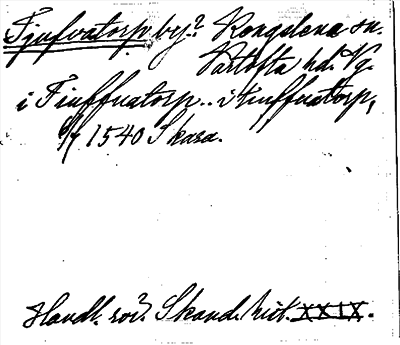 Tjufvatorp by? Kongslena sn.
Vartofta hd. Vg.
i Tiuffuatorp.. i tiuffuatorp,
6/7 1540 Skara.
Handl. rör. Skand. hist. XXIX.